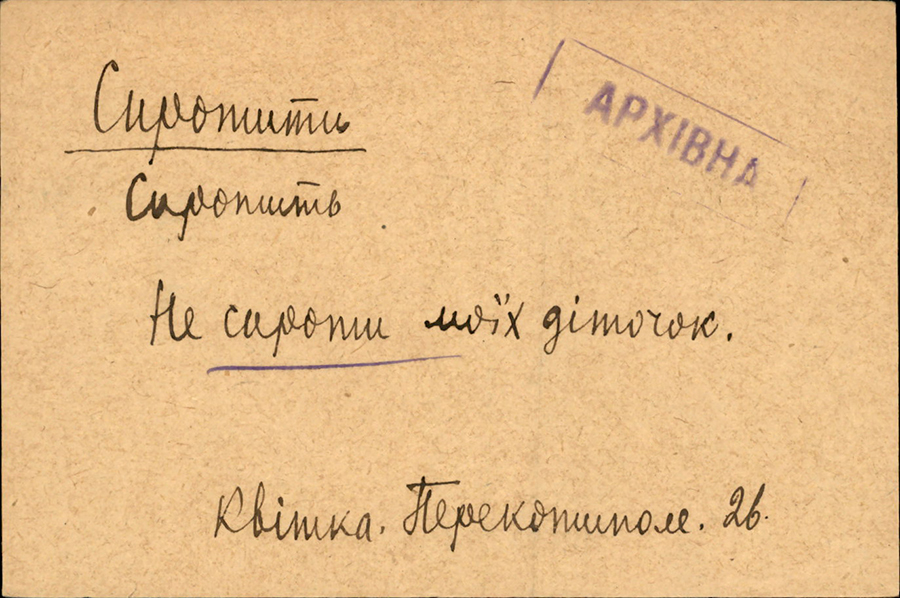 Сиротити
АРХІВНА
Сиротить
Не сироти моїх діточок.
Квітка. Перекотиполе. 26.